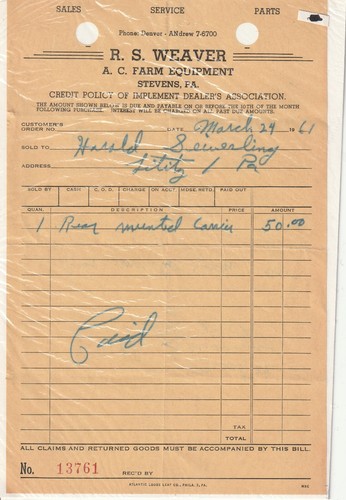 SALES SERVICE PARTS
Phone: Denver - ANdrew 7-6700
R. S. WEAVER
A. C. FARM EQUIPMENT
STEVENS, PA.
CREDIT POLICY OF IMPLEMENT DEALER'S ASSOCIATION.
THE AMOUNT SHOWN BELOW IS DUE AND PAYABLE ON OR BEFORE THE 10TH OF THE MONTH
FOLLOWING PURCHASE. INTEREST WILL BE CHARGED ON ALL PAST DUE AMOUNTS.
CUSTOMER'S
ORDER NO. DATE March 24 1961
SOLD TO Harold
ADDRESS Lititz 1 Pa
SOLD BY CASH C. O. D. CHARGE ON ACCT. MDSE. RETD. PAID OUT
QUAN. DESCRIPTION PRICE AMOUNT
1 Rear mounted Carrier 50.00
Paid
TAX
TOTAL
ALL CLAIMS AND RETURNED GOODS MUST BE ACCOMPANIED BY THIS BILL.
No. 13761 REC'D BY
ATLANTIC LOOSE LEAF CO., PHILA. 3, PA.